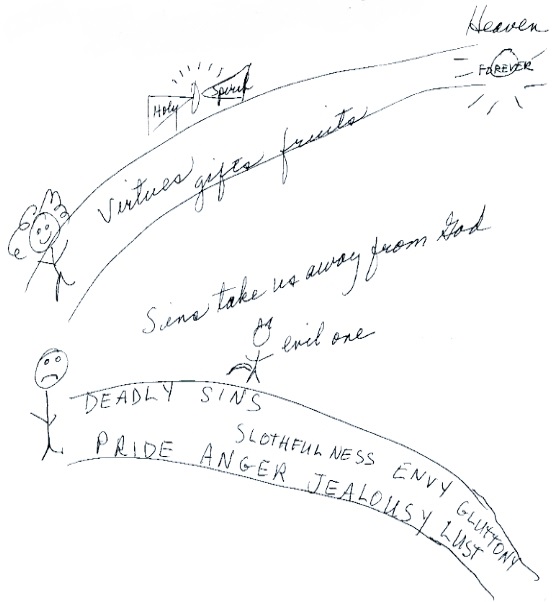 Heaven
FOREVER
Holy Spirit
Virtues gifts fruits
Sins take us away from God
evil one
DEADLY SINS
SLOTHFULNESS ENVY GLUTTONY
PRIDE ANGER JEALOUSY LUST